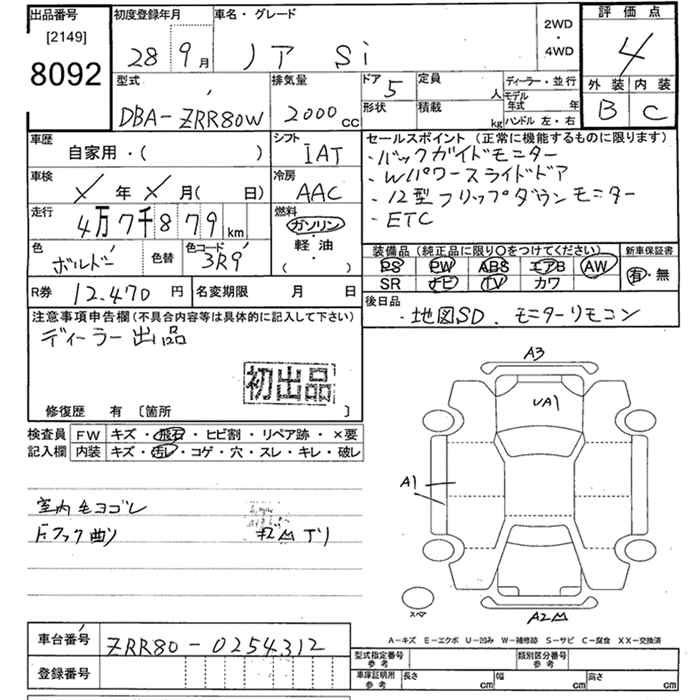 出品番号
[2149]
8092
初度登録年月
28年9月
車名・グレード
ノア Si
2WD
・
4WD
評価点
4
外装 内装
B C
型式
DBA-ZRR80W
排気量
2000cc
ドア 5
定員 人
ディーラー・並行
モデル年式 年
形状
積載 kg
ハンドル 左・右
車歴
自家用・( )
シフト
IAT
セールスポイント (正常に機能するものに限ります)
・バックガイドモニター
・Wパワースライドドア
・12型フリップダウンモニター
・ETC
車検
X年X月( 日)
冷房
AAC
走行
4万7千879km
燃料
ガソリン
軽油
( ・ )
色
ボルドー
色替
色コード
3R9
装備品 (純正品に限り○をつけてください)
新車保証書
PS PW ABS エアB AW
SR ナビ TV カワ
有・無
R券 12.470円
名変期限 月 日
後日品
・地図SD. モニターリモコン
注意事項申告欄(不具合内容等は具体的に記入して下さい)
ディーラー出品
初出品
修復歴 有 [箇所
検査員 FW キズ・飛石・ヒビ割・リペア跡・×要
記入欄 内装 キズ・汚レ・コゲ・穴・スレ・キレ・破レ
室内毛ヨゴレ
A3
UA1
A1
スペア
A2
A-キズ E-エクボ U-凹み W-補修跡 S-サビ C-腐食 XX-交換済
車台番号 ZRR80-0254312
登録番号
型式指定番号
参考
類別区分番号
参考
車庫証明用
参考
長さ cm
幅 cm
高さ cm